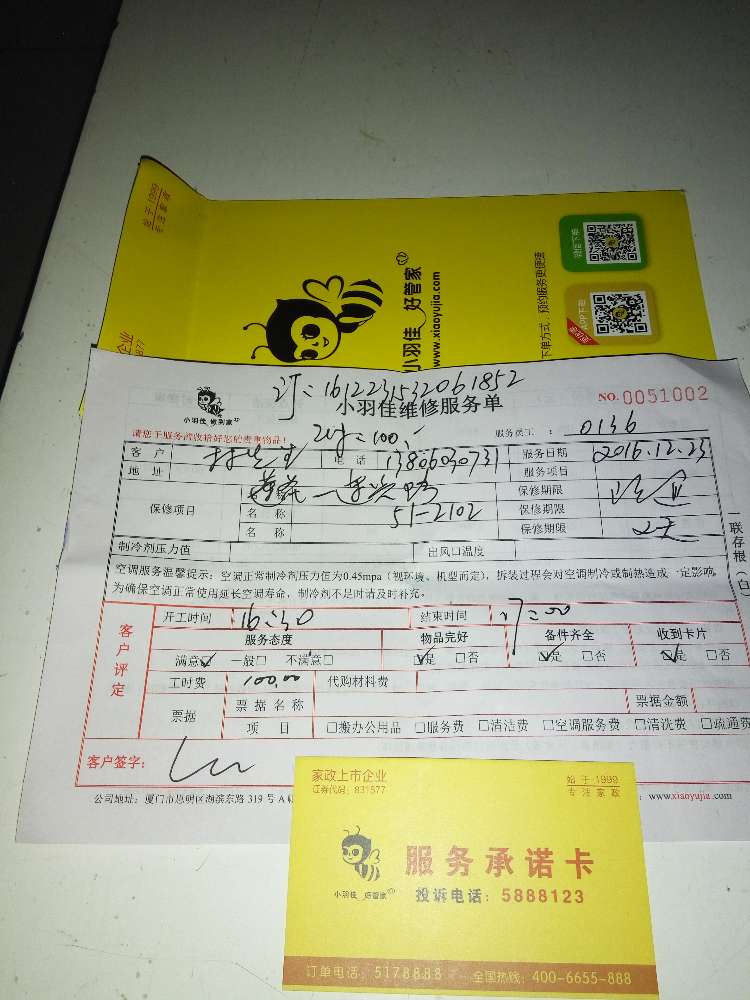 始于1999
专注家政
企业
小羽佳 好管家
www.xiaoyujia.com
下单方式，预约服务更便捷
微信下单
APP下单
订:161223153206 1852
小羽佳 修到家
小羽佳维修服务单
NO. 0051002
请您于服务前收拾好您的贵重物品！
服务员工 : 0136
客户
电话 13806030731
服务日期 2016.12.23
地址
服务项目
保修项目
名称
名称
51-2102
保修期限
保修期限
保修期限
制冷剂压力值
出风口温度
空调服务温馨提示：空调正常制冷剂压力值为0.45mpa（视环境、机型而定），拆装过程会对空调制冷或制热造成一定影响，
为确保空调正常使用延长空调寿命，制冷剂不足时请及时补充。
一联存根（白
客户评定
开工时间 16:30 结束时间 17:00
服务态度 物品完好 备件齐全 收到卡片
满意☑ 一般□ 不满意□ ☑是 □否 ☑是 □否 ☑是 □否
工时费 100.00 代购材料费
票据 票据名称 票据金额
项目 □搬办公用品 □服务费 □清洁费 □空调服务费 □清洗费 □疏通费
客户签字：
公司地址：厦门市思明区湖滨东路 319 号 A
www.xiaoyujia.com
家政上市企业
证券代码：831577
始于1999
专注家政
小羽佳 好管家
服务承诺卡
投诉电话：5888123
订单电话：5178888 全国热线：400-6655-888